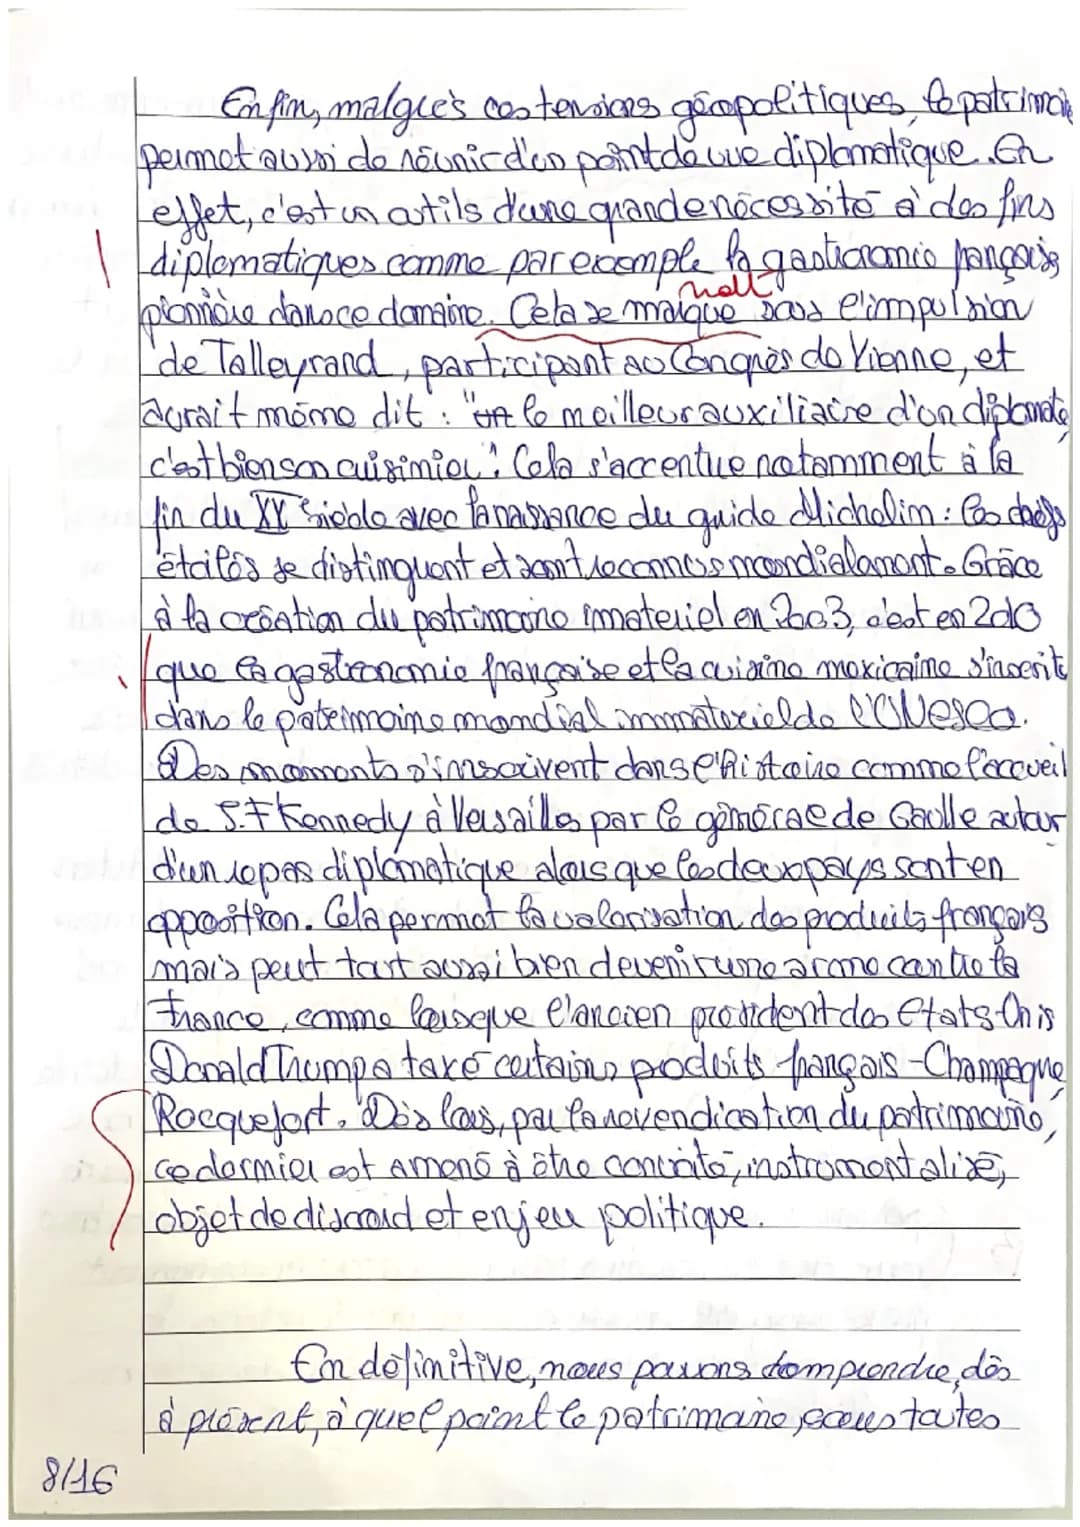 Enfin, malgrés ces tensions géopolitiques, le patrimoi
permet aussi de réunir d'un point de vue diplomatique. En
effet, c'est un outils d'une grande nécessité à des fins
diplomatiques comme par exemple la gastronomie françois
pionnière dans ce domaine. Cela se marque sous l'impulsion
de Talleyrand, participant au Congrès de Vienne, et
aurait même dit : "le meilleur auxiliaire d'un diplomate,
c'est bien son cuisinier". Cela s'accentue notamment à la
fin du XXe siècle avec la naissance du guide Michelin : les chefs
étoilés se distinguent et sont reconnus mondialement. Grâce
à la création du patrimoine immateriel en 2003, c'est en 2010
que la gastronomie française et la cuisine mexicaine s'inscrit
dans le patrimoine mondial immateriel de l'UNesco.
Des moments s'inscrivent dans l'histoire comme l'acceuil
de J.F Kennedy à Versailles par le général de Gaulle autour
d'un repas diplomatique alors que les deux pays sont en
opposition. Cela permet la valorisation des produits français
mais peut tout aussi bien devenir une arme contre la
France, comme lorsque l'ancien président des Etats-Unis
Donald Trump a taxé certains produits français Champagne,
Rocquefort. Dès lors, par la revendication du patrimoine,
ce dernier est amené à être convoité, instrumentalisé,
objet de discord et enjeu politique.
En définitive, nous pouvons comprendre, dès
à présent, à quel point le patrimoine, sous toutes
8/16